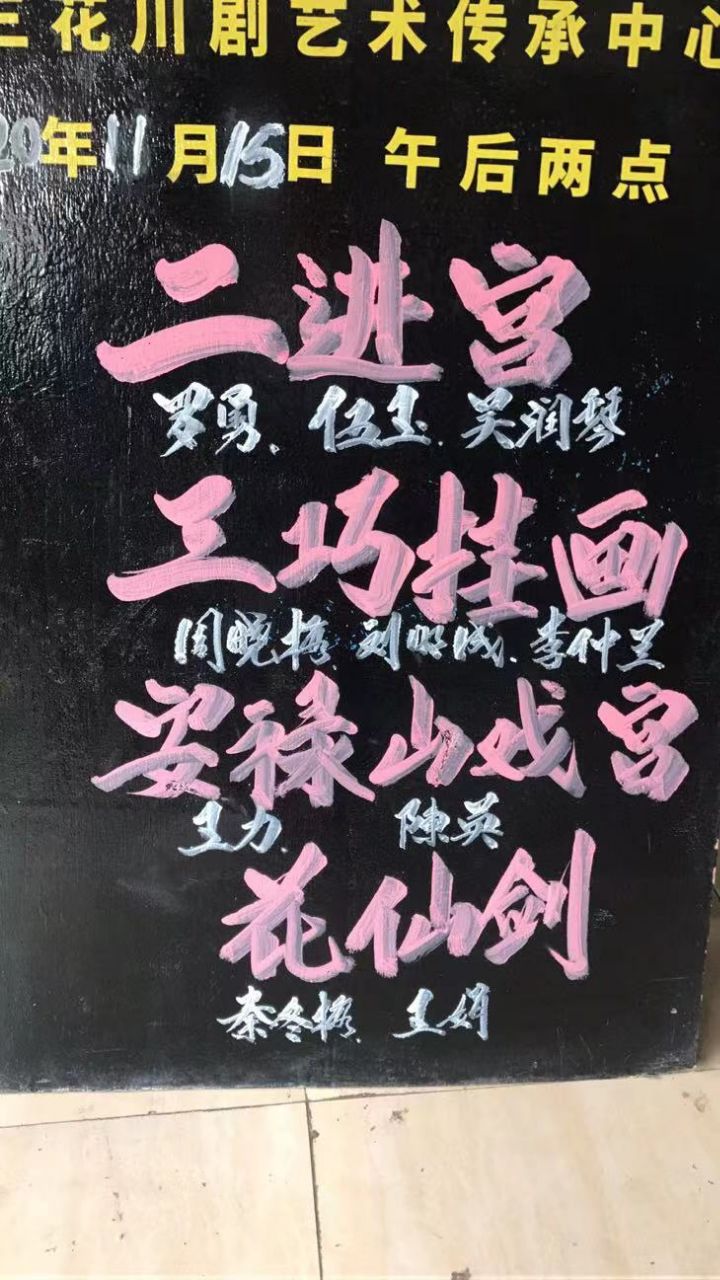 三花川剧艺术传承中心
20年11月15日 午后两点
二进宫
罗勇、伍玉、吴润琴
三巧挂画
周晓梅、刘明成、李仲兰
安禄山戏宫
王力、 陳英
花仙剑
秦冬梅、王娟